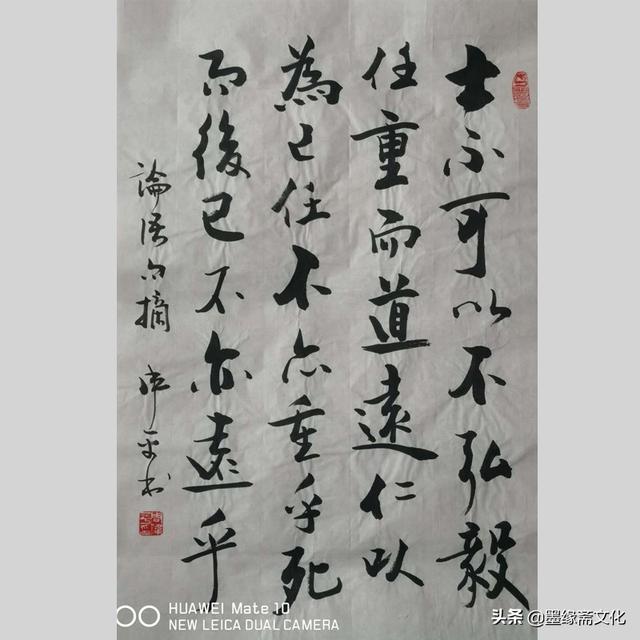 士不可以不弘毅
任重而道遠仁以
為己任不亦重乎死
而後已不亦遠乎
論語句摘 平书
HUAWEI Mate 10
NEW LEICA DUAL CAMERA
头条 @墨缘斋文化